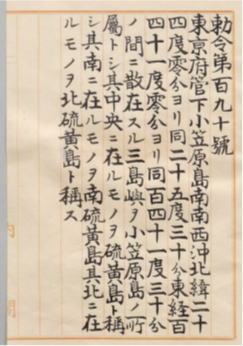 勅令第百九十號
東京府管下小笠原島南南西沖北緯二十
四度零分ヨリ同二十五度三十分東經百
四十一度零分ヨリ同百四十一度三十分
ノ間ニ散在スル三島嶼ヲ小笠原島ノ所
屬トシ其中央ニ在ルモノヲ硫黃島ト稱
シ其南ニ在ルモノヲ南硫黃島其北ニ在
ルモノヲ北硫黃島ト稱ス